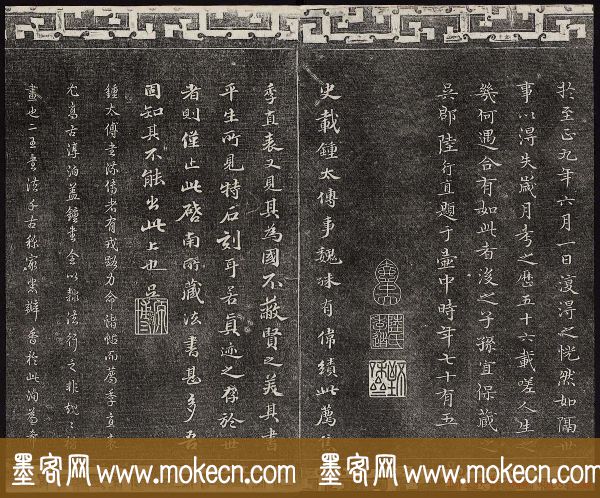 於至正九年六月一日復得之恍然如隔世
事以得失歲月考之歷五十六載嗟人生之
幾何遇合有如此者後之子孫宜保藏之
吳郡陸行直題于壺中時年七十有五
史載鍾太傅事魏殊有偉績此薦焦
季直表又見其為國不蔽賢之美其書
平生所見特石刻耳若真迹之存於世
者則僅止此啓南所藏法書甚多吾
固知其不能出此上也 吳寬
鍾太傅書流傳者有戎路力命諸帖而薦季直表
尤高古淳泊蓋鍾書全以隸法行之非魏晉
畫也二王書法千古 於此
墨客网 www.mokecn.com 墨客网 www.mokecn.com
墨客网 www.mokecn.com 墨客网 www.mokecn.com